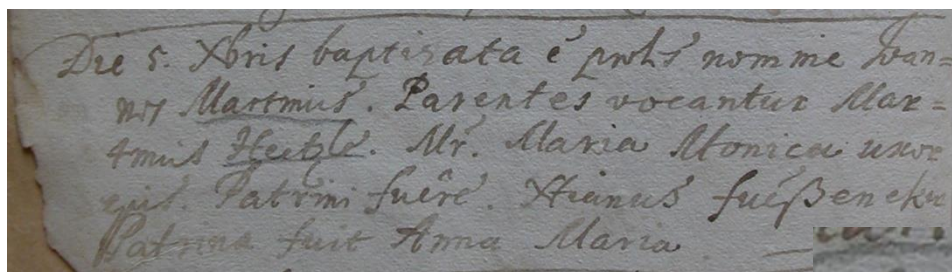 Die 5. Xbris baptizata ê proles nomine Joan=
nes Martinus. Parentes vocantur Mar=
tinus Heitzle. Mr. Maria Monica uxor
ejus. Patrini fuêre. Xtianus
Patrina fuit Anna Maria